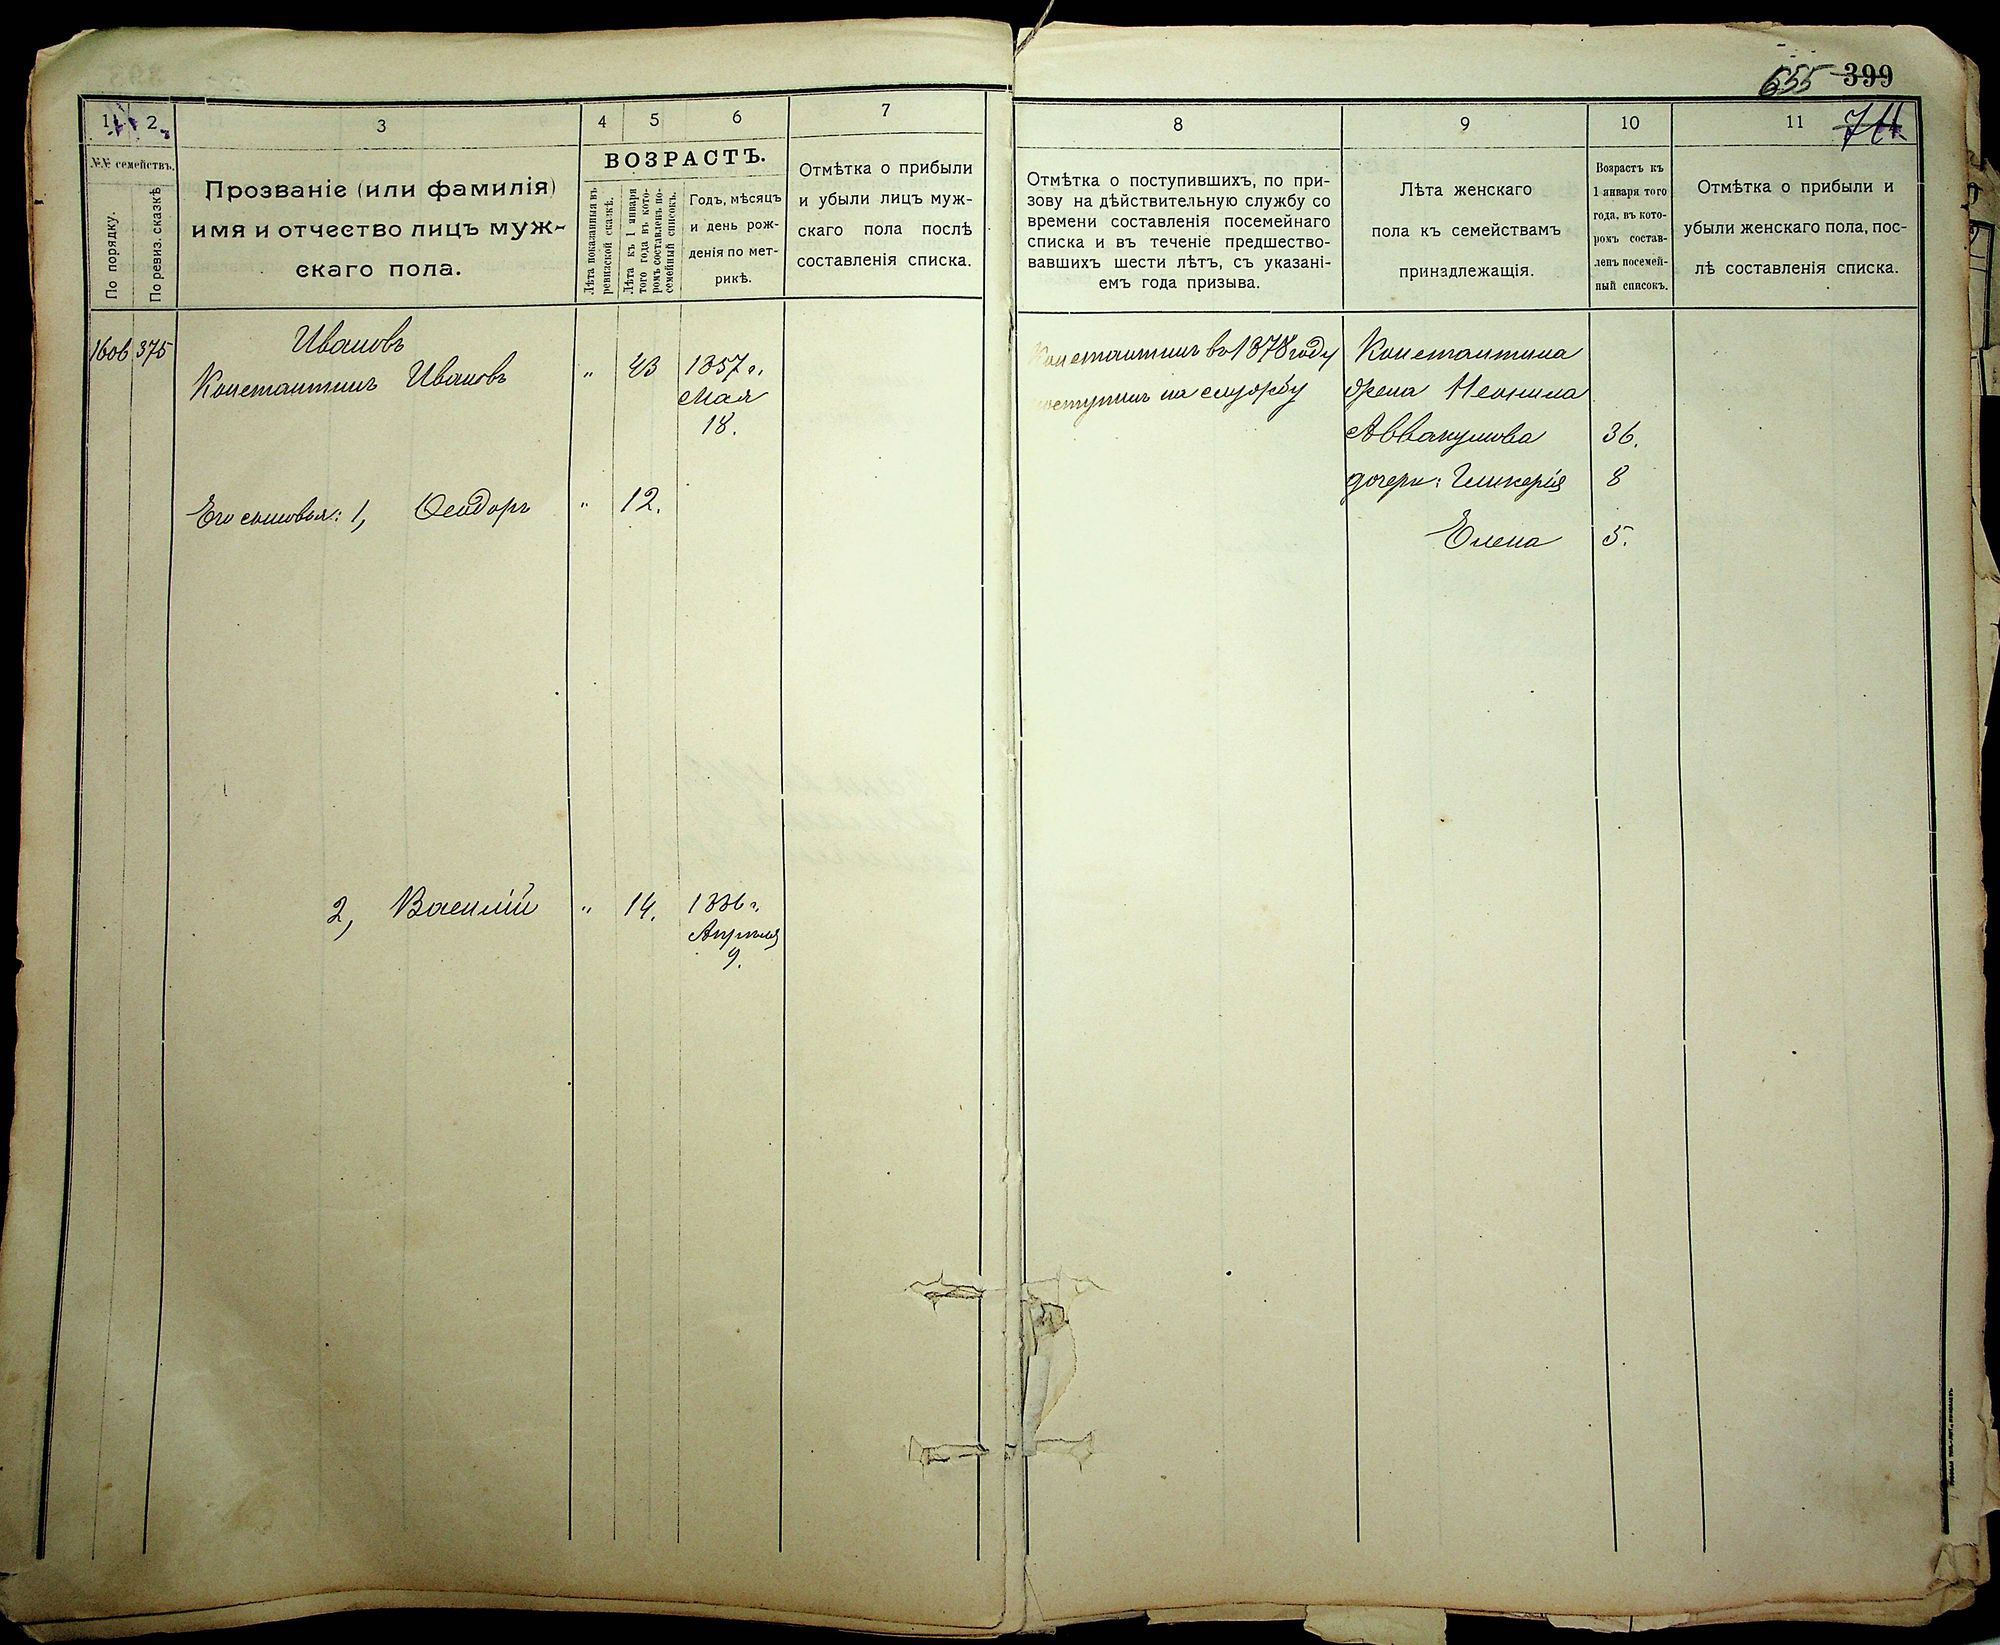 655 399
711
1 2 3 4 5 6 7
№№ семействъ.
По порядку.
По ревиз. сказкѣ
Прозваніе (или фамилія)
имя и отчество лицъ муж-
скаго пола.
ВОЗРАСТЪ.
Лѣта показанныя въ
ревизской сказкѣ.
Лѣта къ 1 января
того года въ кото-
ромъ составленъ по-
семейный списокъ.
Годъ, мѣсяцъ
и день рож-
денія по мет-
рикѣ.
Отмѣтка о прибыли
и убыли лицъ муж-
скаго пола послѣ
составленія списка.
1606 375 Ивановъ
Константинъ Ивановъ " 43 1857 г.
Мая
18.
Его сыновья: 1, Ѳеодоръ " 12.
2, Василій " 14. 1886 г.
Апрѣля
9.
8 9 10 11
Отмѣтка о поступившихъ, по при-
зову на дѣйствительную службу со
времени составленія посемейнаго
списка и въ теченіе предшество-
вавшихъ шести лѣтъ, съ указані-
емъ года призыва.
Лѣта женскаго
пола къ семействамъ
принздлежащія.
Возрастъ къ
1 января того
года, въ кото-
ромъ состав-
ленъ посемей-
ный списокъ.
Отмѣтка о прибыли и
убыли женскаго пола, пос-
лѣ составленія списка.
Константинъ въ 1878 году
поступилъ на службу
Константина
жена Неонила
Аввакумова 36.
дочери: Гликерія 8
Елена 5.